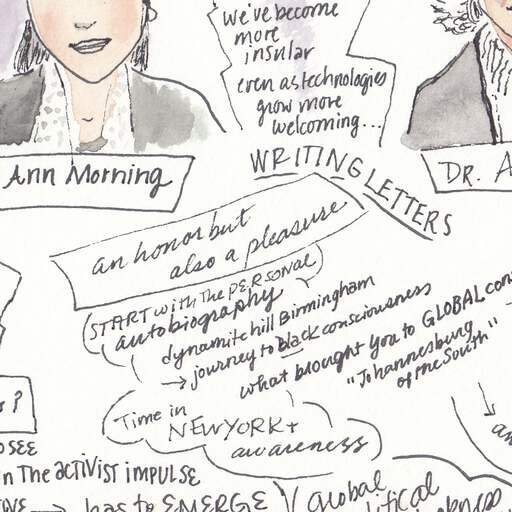 we've become
more
insular
even as technologies
grow more
welcoming...
Ann Morning
DR. A
WRITING LETTERS
an honor but
also a pleasure
(START with The PERSONAL)
autobiography
dynamite hill Birmingham
→ journey to black consciousness
what brought you to GLOBAL con
"Johannesburg
of the South"
Time in
NEW YORK +
awareness
?
OSEE
n The ACTIVIST IMPULSE
→ has to EMERGE
Global
litical
an